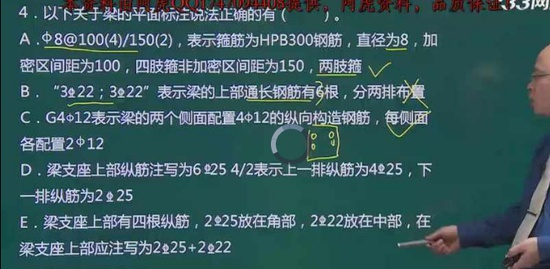 4．以下关于梁的平面标注说法正确的有（    ）。
A．Φ8@100(4)/150(2)，表示箍筋为HPB300钢筋，直径为8，加
密区间距为100，四肢箍非加密区间距为150，两肢箍
B．“3⌽22；3⌽22”表示梁的上部通长钢筋有6根，分两排布置
C．G4Φ12表示梁的两个侧面配置4Φ12的纵向构造钢筋，每侧面
各配置2Φ12
D．梁支座上部纵筋注写为6⌽25 4/2表示上一排纵筋为4⌽25，下
一排纵筋为2⌽25
E．梁支座上部有四根纵筋，2⌽25放在角部，2⌽22放在中部，在
梁支座上部应注写为2⌽25+2⌽22